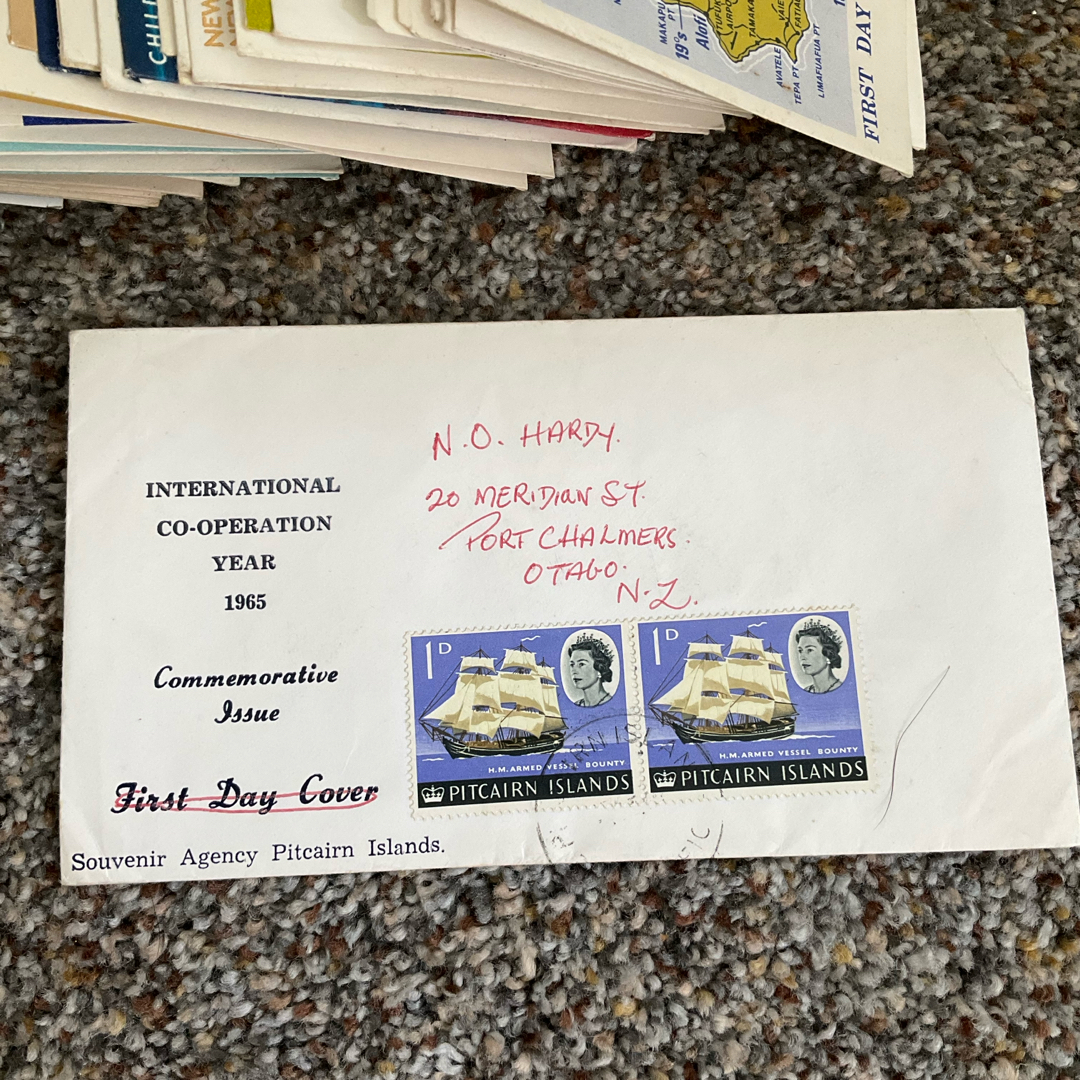 CHIL
NEW
MAKAPU
PT
19°S
Alofi
TUFUK
AIRPO
TAMAKA
VAIE
FATIA
AVATELE
TEPA PT
LIMAFUAFUA PT
FIRST DAY
N.O. HARDY.
20 MERIDIAN ST.
PORT CHALMERS.
OTAGO.
N.Z.
INTERNATIONAL
CO-OPERATION
YEAR
1965
Commemorative
Issue
First Day Cover
Souvenir Agency Pitcairn Islands.
1D
H.M. ARMED VESSEL BOUNTY
PITCAIRN ISLANDS
1D
H.M. ARMED VESSEL BOUNTY
PITCAIRN ISLANDS